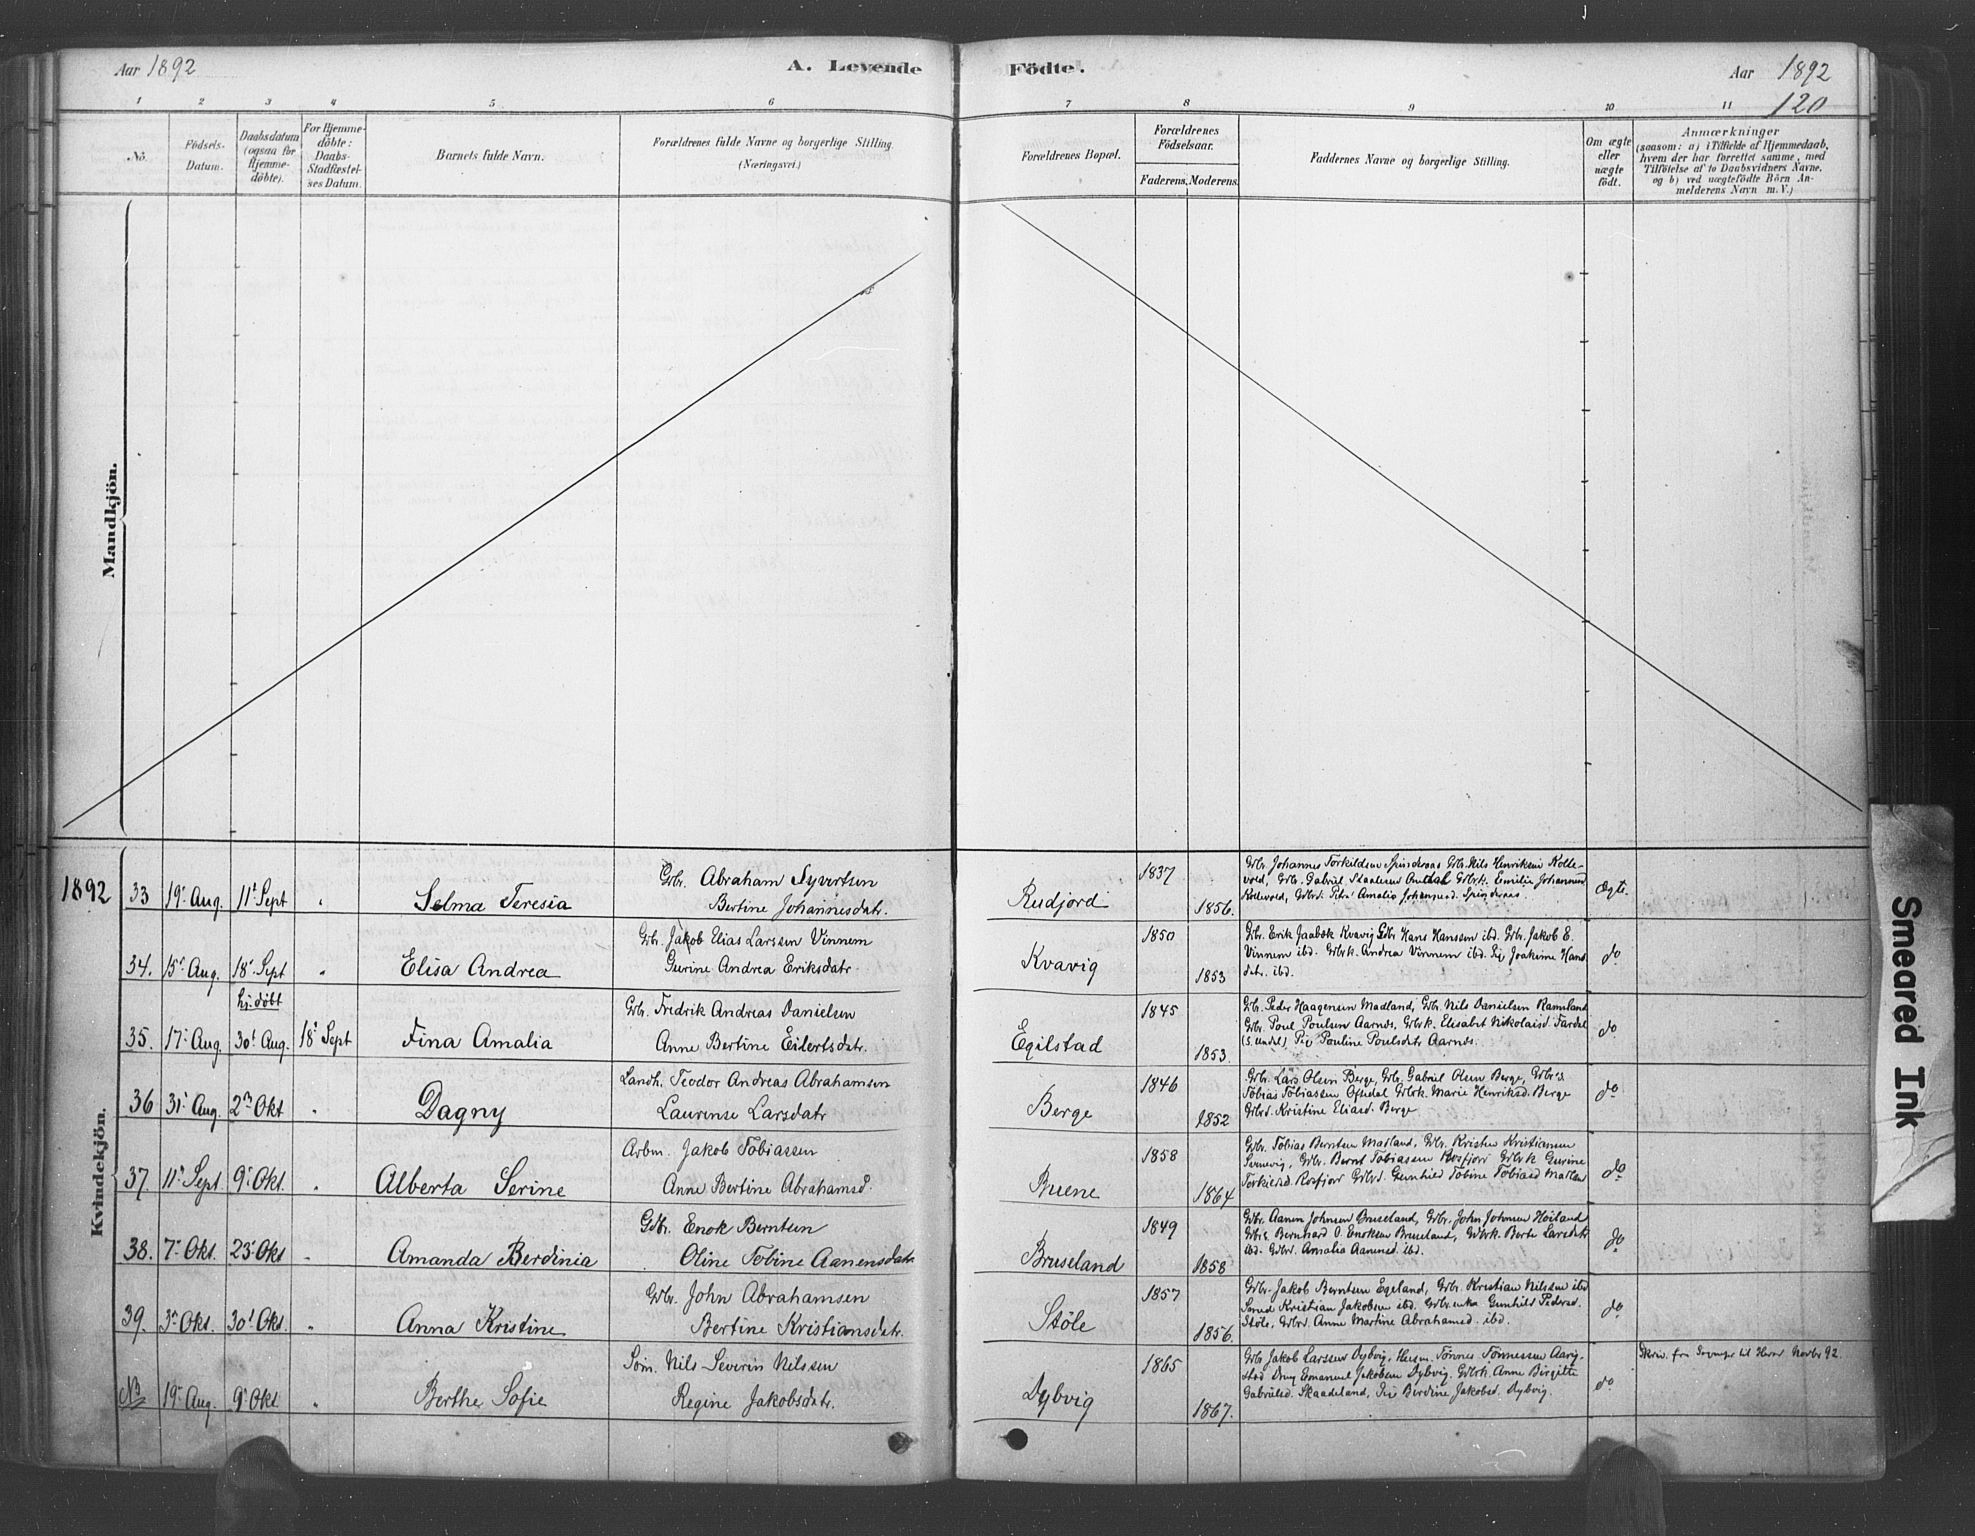 Aar 1892
A. Levende
Födte.
Aar 1892
120
1 2 3 4 5 6 7 8 9 10 11
No.
Födsels-
Datum.
Daabsdatum
(ogsaa for
Hjemme-
döbte).
For Hjemme-
döbte:
Daabs-
Stadfæstel-
ses Datum.
Barnets fulde Navn.
Forældrenes fulde Navne og borgerlige Stilling.
(Næringsvei.)
Forældrenes Bopæl.
Forældrenes
Födselsaar.
Faderens. Moderens.
Faddernes Navne og borgerlige Stilling.
Om ægte
eller
uægte
födt.
Anmærkninger
(saasom: a) i Tilfælde af Hjemmedaab,
hvem der har forrettet samme, med
Tilföielse af to Daabsvidners Navne,
og b) ved uægtefödte Börn An-
melderens Navn m. V.)
Mandkjön.
Kvindekjön.
1892
33 19. Aug. 11. Sept Selma Teresia
Gbr. Abraham Syvertsen
Bertine Johannesdatr.
Rudjord 1837 1856.
Gbr. Johannes Torkildsen Spindsraas Gbr. Nils Henriksen Rolle-
vold, Gbr. Gabriel Gbrk. Emilie Johannesd
Amalie Johannesd. Spindsraas.
Ægte.
34. 15. Aug. 18. Sept Elisa Andrea
Gbr. Jakob Elias Larssen Vinnem
Gurine Andrea Eriksdatr.
Kvavig 1850 1853
Gbr. Erik Jaabæk Kvavig Gbr Hans Hanssen ibd. Gbr. Jakob E.
Vinnem ibd. Gbrk. Andrea Vinnem ibd. Pij Joakime Hans
datr. ibd.
do
hj. döbt
35. 17. Aug. 30. Aug. 18. Sept Fina Amalia
Gbr. Fredrik Andreas Danielsen
Anne Bertine Eilertsdatr.
Egilstad 1845 1853.
Gbr. Peder Haagensen Madland, Gbr. Nils Danielsen Ramsland
Gbr. Poul Poulsen Aarnes, Gbrk. Elisabet Nikolaisd. Fardal
(S. Undal) Pij Pouline Poulsdatr Aarnes.
do
36 31. Aug. 2. Okt Dagny
Landh. Teodor Andreas Abrahamsen
Laurense Larsdatr
Berge 1846 1852
Gbr. Lars Olsen Berge, Gbr. Gabriel Olsen Berge, Gbrs.
Tobias Tobiassen Ofsdal Gbrk. Marie Henriksd. Berge
Gbrd. Kristine Eliasd. Berge
do
37 11. Sept. 9. Okt. Alberta Serine
Arbm. Jakob Tobiassen
Anne Bertine Abrahamsd.
Buene 1858 1864
Gbr. Tobias Berntsen Madland, Gbr. Krister Kristiansen
Sernevig, Gbr. Bernt Tobiassen Rosfjord Gbrk Gurine
Torkieldsd. Rosfjord Gbrd. Gunhild Tobine Tobiasd Madland
do
38. 7. Okt. 23. Okt Amanda Berdinia
Gbr. Enok Berntsen
Oline Tobine Aanensdatr.
Bruseland 1849 1858
Gbr. Aanen Johnsen Bruseland, Gbr. John Johnsen Höiland
Gbrs. Bernhard O. Enoksen Bruseland, Gbrk. Berte Larsdatr
ibd. Gbrd. Amalia Aanensd. ibd.
do
39. 3. Okt. 30. Okt. Anna Kristine
Gbr. John Abrahamsen
Bertine Kristiansdatr.
Stöle 1857 1856.
Gbr. Jakob Berntsen Egeland, Gbr. Kristian Nilsen ibd
Kristian Jakobsen ibd. Gbr.enke Gunhild Pedersd.
Stöle, Gbrd. Anne Martine Abrahamsd. ibd.
do
NB 19. Aug. 9. Okt Berthe Sofie
Söm. Nils Severin Nilssen
Regine Jakobsdatr.
Dybvig 1865 1867.
Gbr Jakob Larssen Dybvig, Husm. Tönnes Tönnessen Aarig-
stad Ung Emanuel Jakobsen Dybvig. Gbrk. Anne Birgitte
Gabrielsd. Skaadeland, Pij Berdine Jakobsd. Dybvig.
do
Skriv. fra til Herad Novbr 92.
Smeared Ink